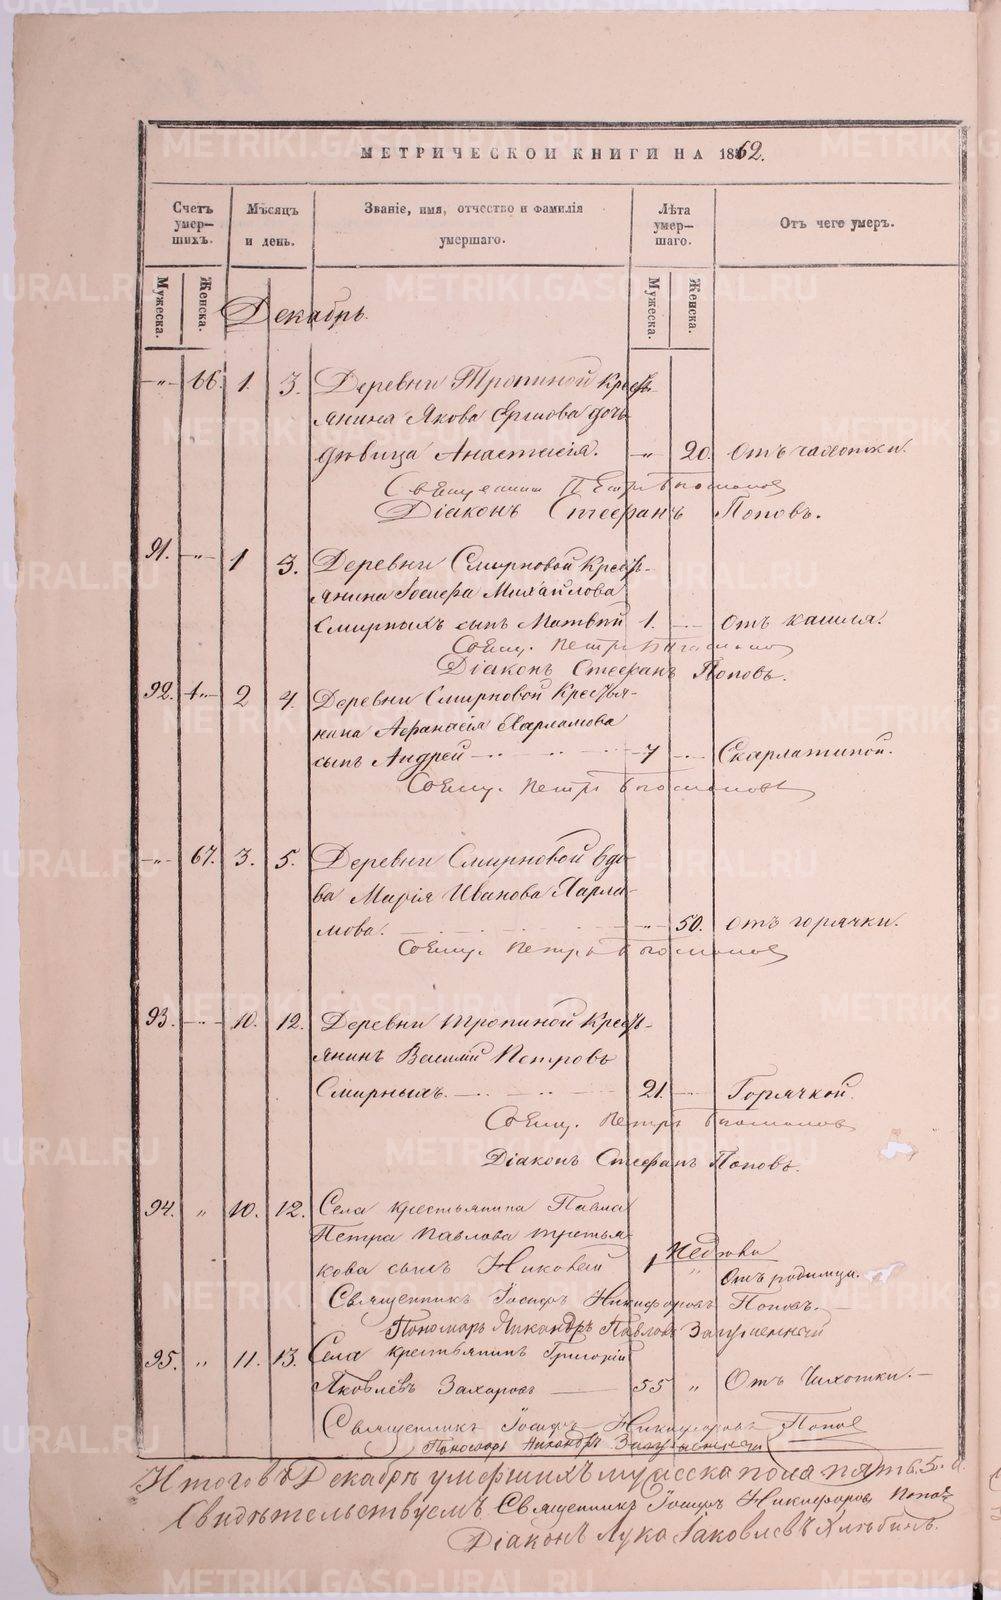 МЕТРИЧЕСКОЙ КНИГИ НА 1862.
Счетъ умер-шихъ.
Мѣсяцъ и день.
Званіе, имя, отчество и фамилія умершаго.
Лѣта умер-шаго.
Отъ чего умеръ.
Мужеска. Женска. Мужеска. Женска.
Декабрь.
-"- 66. 1. 3. Деревни Тропиной Кресть-
янина Якова Ершова дочь
дѣвица Анастасія. -"- 20. Отъ чахотки.
Священникъ Петръ
Діаконъ Стефанъ Поповъ.
91. -"- 1 3. Деревни Смирновой Кресть-
янина Іосифа Михайлова
Смирныхъ сынъ Матвей 1. - Отъ кашля.
Свящ. Петръ
Діаконъ Стефанъ Поповъ.
92. 2 4. Деревни Смирновой Крестья-
нина Афанасія Харламова
сынъ Андрей 7 - Скарлатиной.
Свящ. Петръ
-"- 67. 3. 5. Деревни Смирновой вдо-
ва Марія Иванова Харла-
мова. -"- 50. Отъ горячки.
Свящ. Петръ
93. - 10. 12. Деревни Тропиной Кресть-
янинъ Василій Петровъ
Смирныхъ. 21. - Горячкой.
Свящ. Петръ
Діаконъ Стефанъ Поповъ.
94. " 10. 12. Села крестьянина Павла
Петра Павлова Третья-
кова сынъ Николай 1 недѣли " Отъ родимца.
Священникъ Іосифъ Никифоровъ Поповъ.
Пономарь Никандръ Павловъ
95. " 11. 13. Села крестьянинъ Григорій
Яковлевъ Захаровъ 55 " Отъ Чихотки.
Священникъ Іосифъ Никифоровъ Поповъ
Пономарь Никандръ
Итого въ Декабрѣ умершихъ мужеска пола пять. 5.
Свидѣтельствуемъ Священникъ Іосифъ Никифоровъ Поповъ
Діаконъ Лука Іаковлевъ Хлѣбинъ.